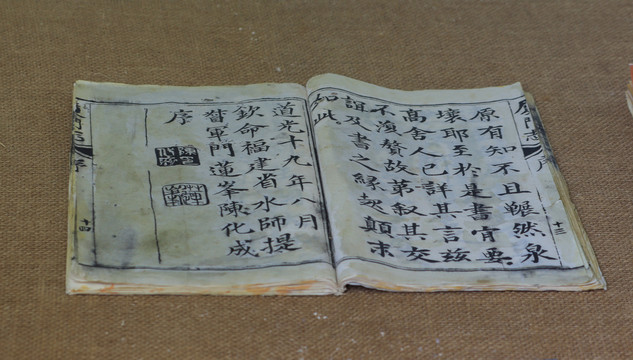 廈門志
序
十三
原有知不且囅然泉
壤耶至於是書要
高舍人已詳其言茲
不贅故弟叙其交
誼及書之緣起顛末
如此
道光十九年八月
欽命福建省水師提
督軍門蓮峯陳化成
序
廈門志
序
十四